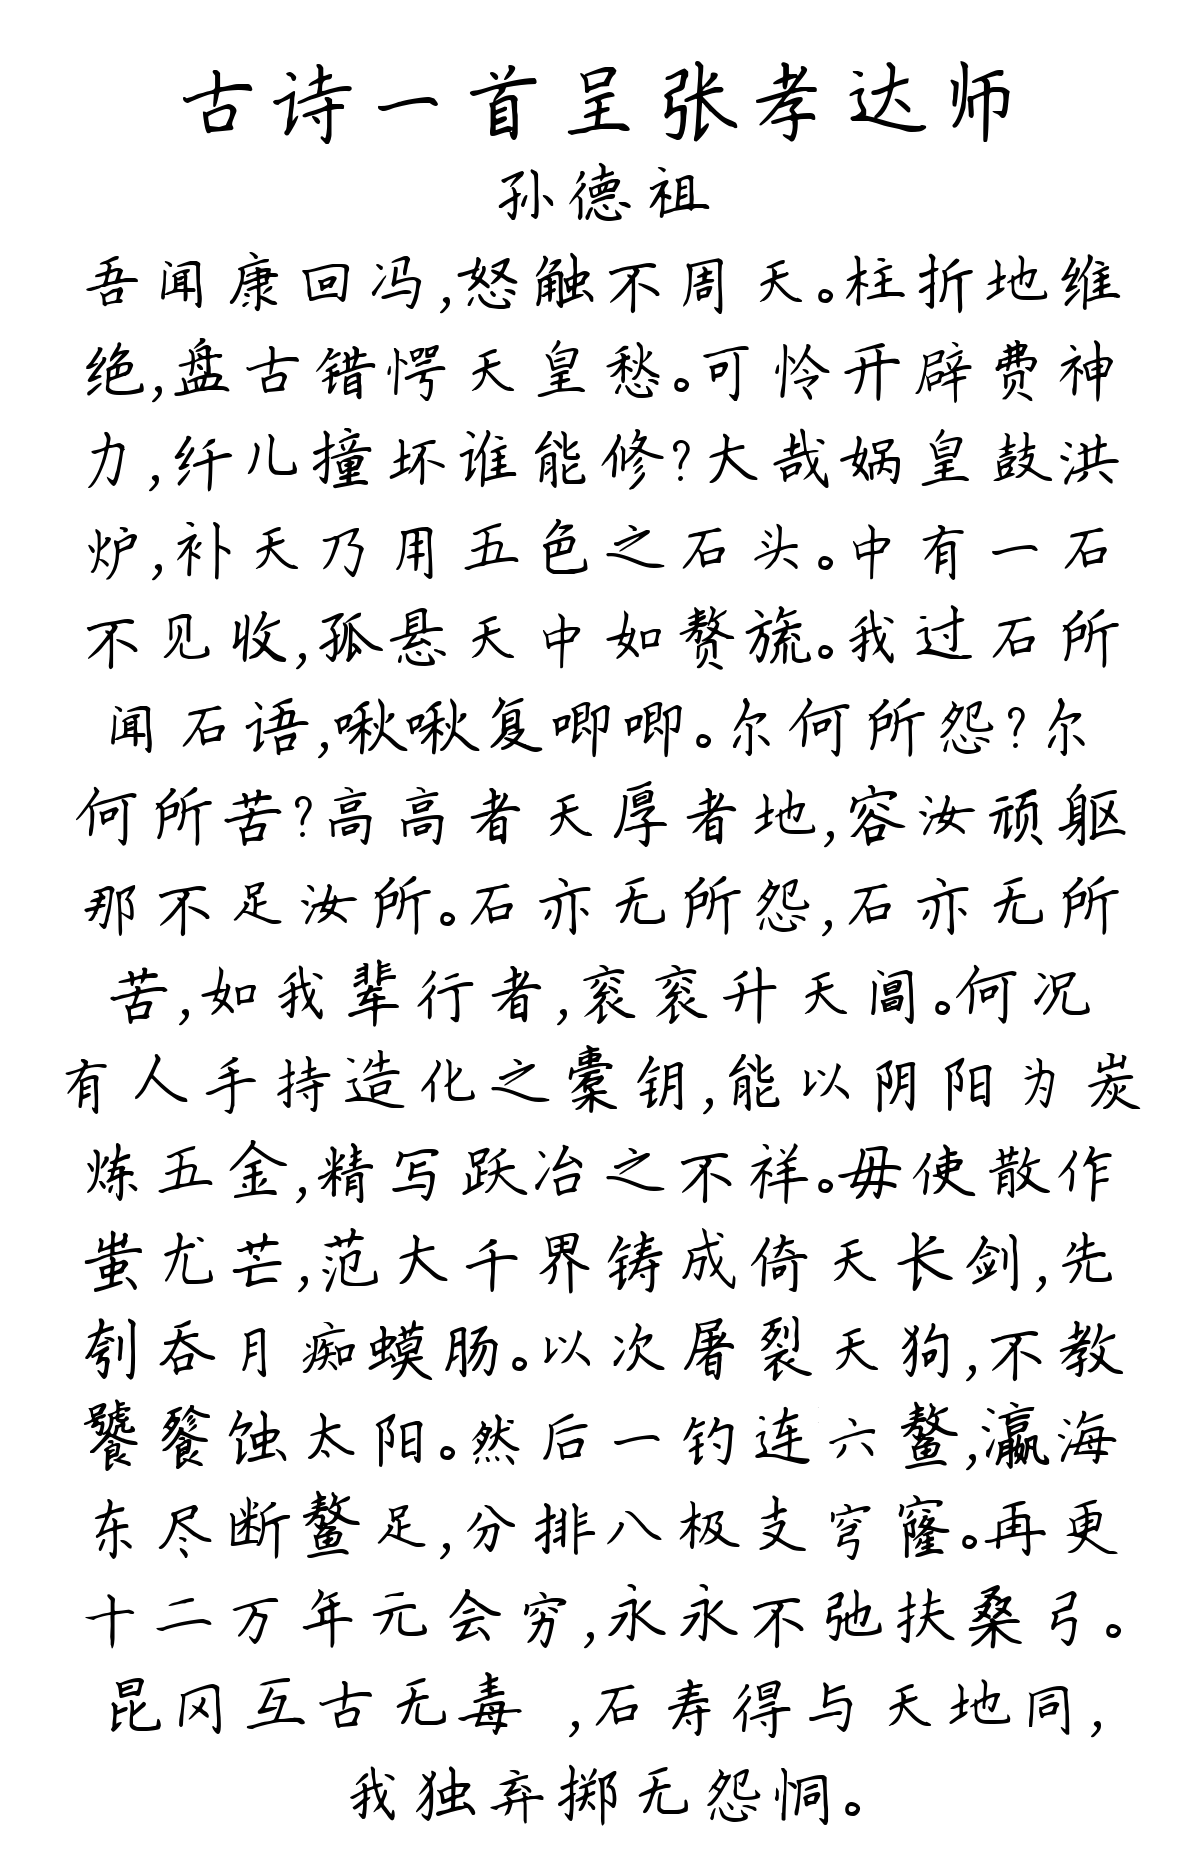 古诗一首呈张孝达师
孙德祖
吾闻康回冯,怒触不周天。柱折地维
绝,盘古错愕天皇愁。可怜开辟费神
力,纤儿撞坏谁能修?大哉娲皇鼓洪
炉,补天乃用五色之石头。中有一石
不见收,孤悬天中如赘旒。我过石所
闻石语,啾啾复唧唧。尔何所怨?尔
何所苦?高高者天厚者地,容汝顽躯
那不足汝所。石亦无所怨,石亦无所
苦,如我辈行者,衮衮升天阊。何况
有人手持造化之橐钥,能以阴阳为炭
炼五金,精写跃冶之不祥。毋使散作
蚩尤芒,范大千界铸成倚天长剑,先
刳吞月痴蟆肠。以次屠裂天狗,不教
饕餮蚀太阳。然后一钓连六鳌,瀛海
东尽断鳌足,分排八极支穹窿。再更
十二万年元会穷,永永不弛扶桑弓。
昆冈互古无毒 ,石寿得与天地同,
我独弃掷无怨恫。